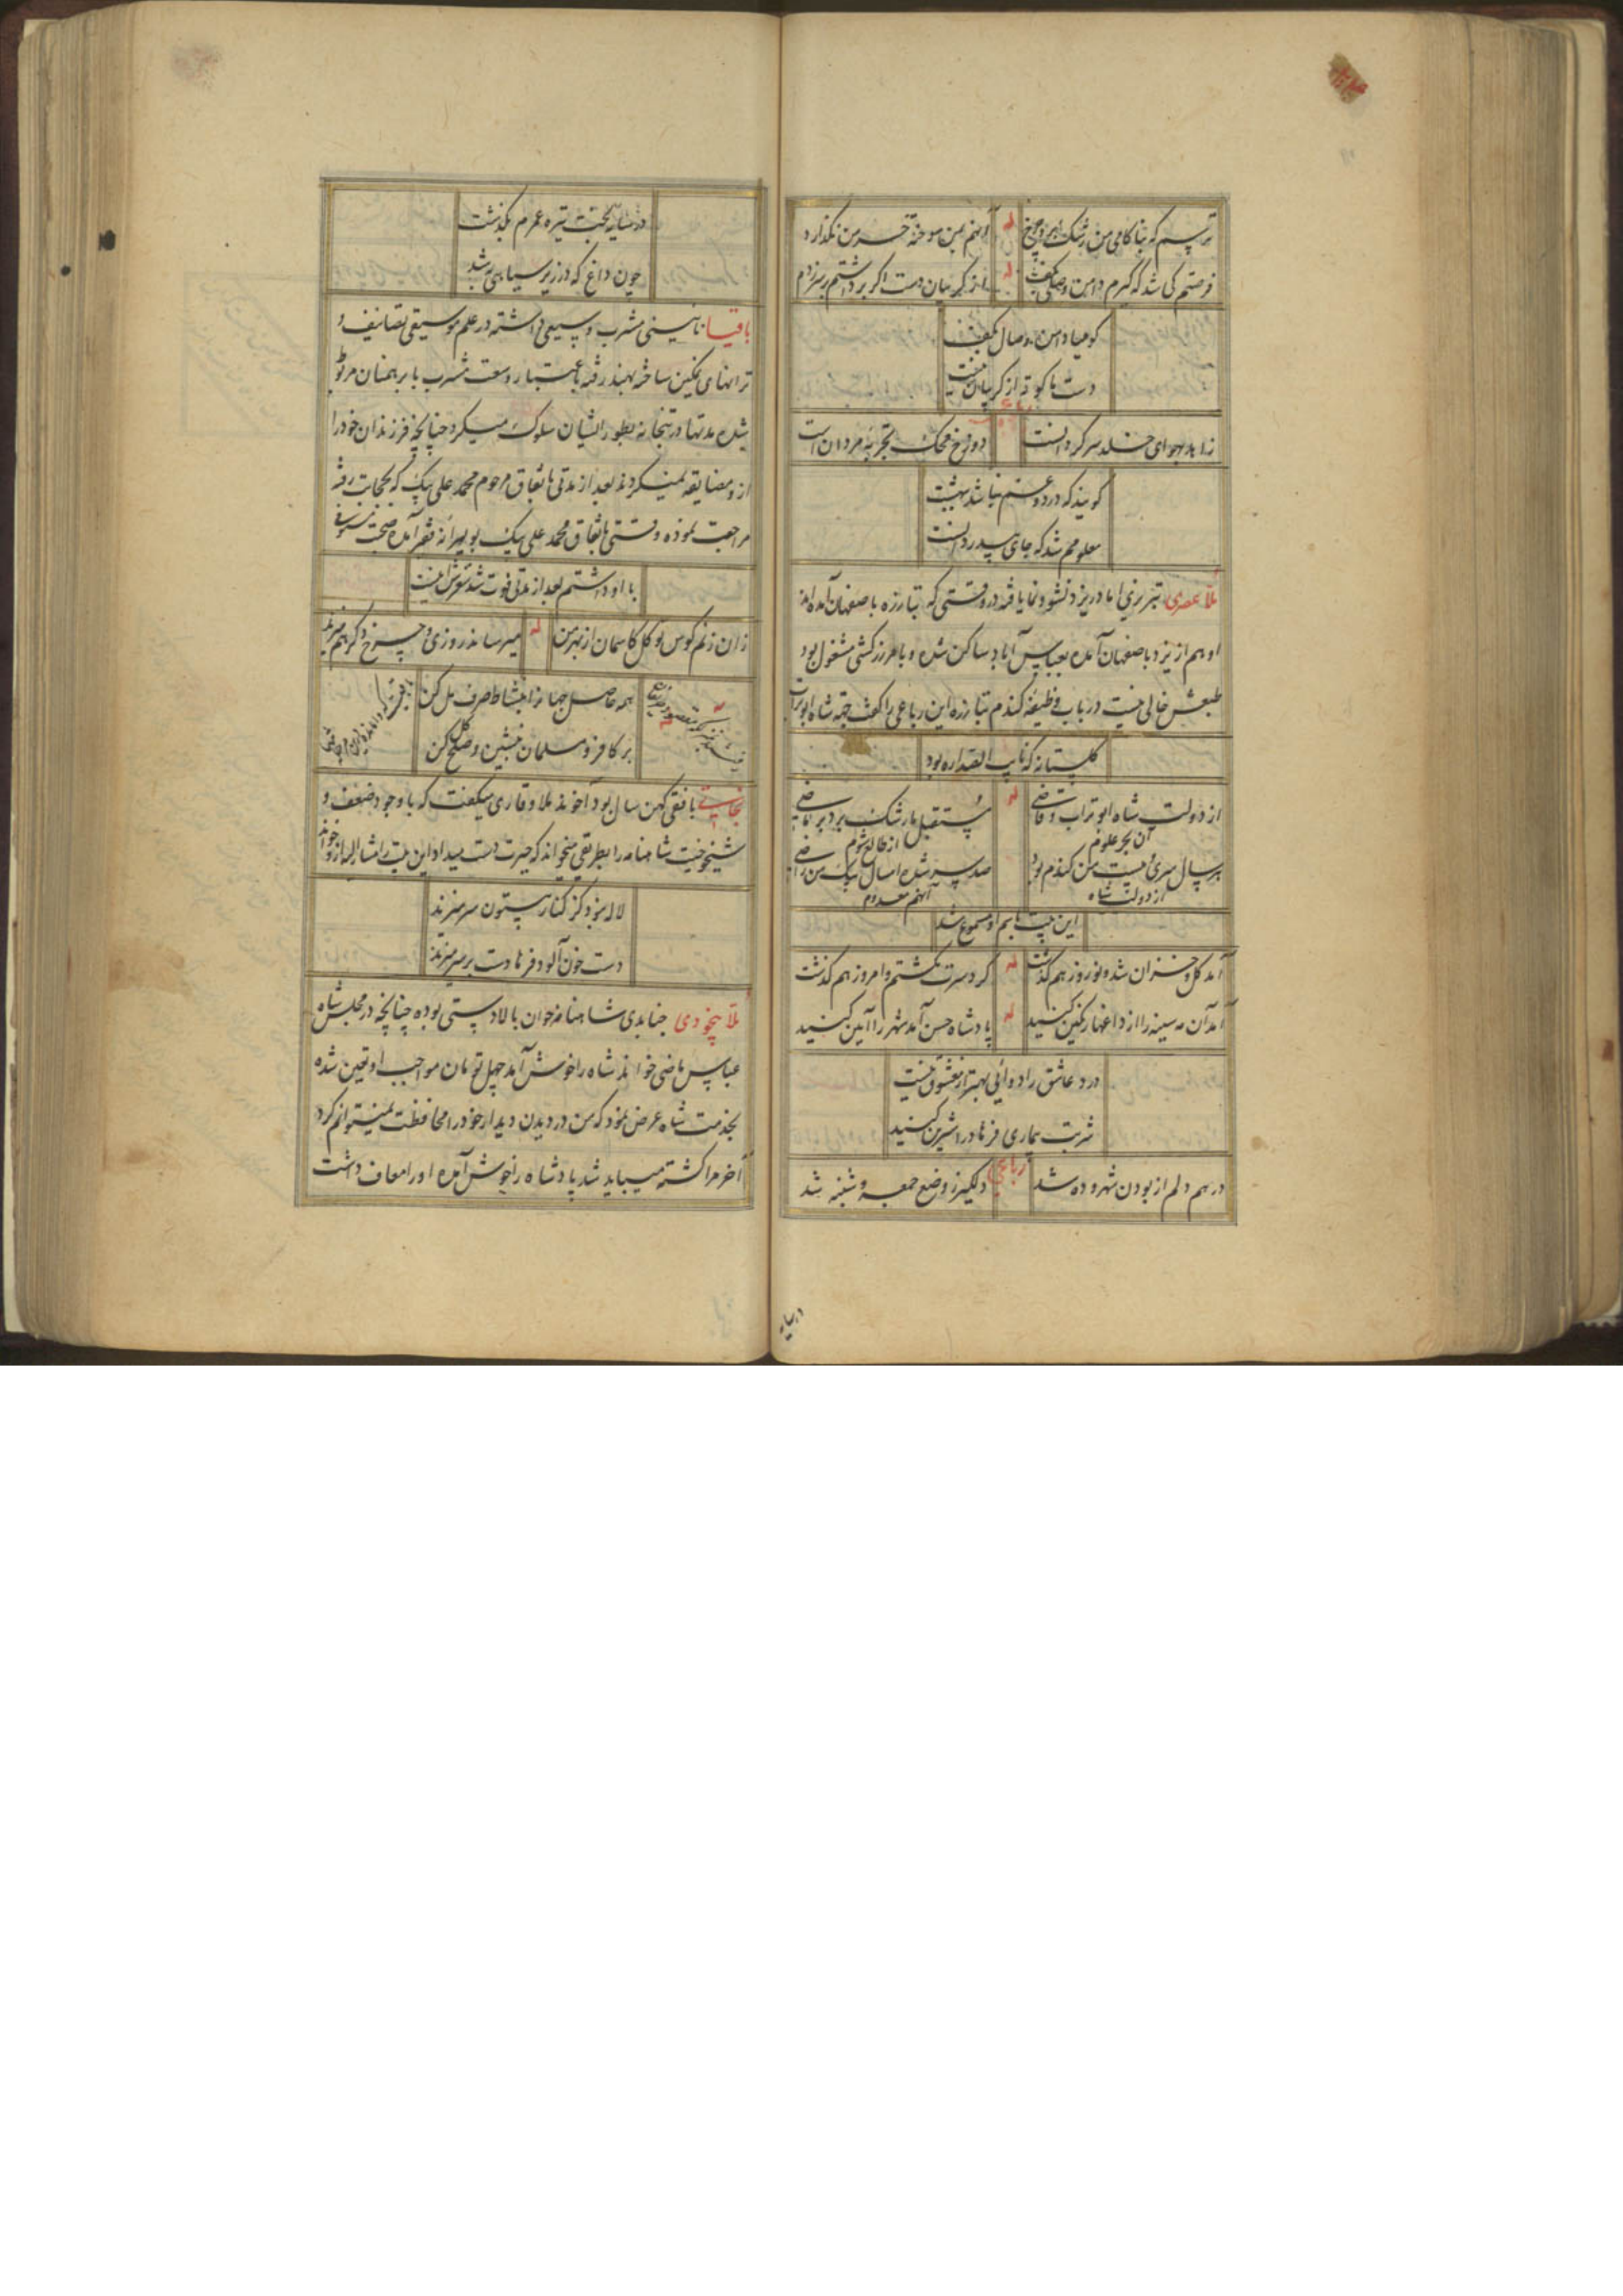 ترسم که بناکامی من رشک برد چرخ له آنهم بمن سوخته خرمن نگذارد
فرصتم کی شد که گیرم دامن وصلی بکف له از گریبان دست اگر برداشتم بر سر زدم
کو میا دامن وصال بکف
دست ما کوته از گریبان نیست
زاهد بهوای خلد سر گردانست دوزخ محک تجربه مردان است
گویند که درد و غم نباشد ببهشت
معلومم شد که جای بیدردانست
ملا عصری تبریزی اما در یزد نشو و نما یافته در وقتی که تبارزه باصفهان آمده اند
او هم از یزد باصفهان آمده بعباس آباد ساکن شده و بامر زرکشی مشغول بود
طبعش خالی نیست در باب وظیفه گندم تبارزه این رباعی را گفته جهة شاه ابوتراب
گلستانه که نایب الصداره بود
از دولت شاه ابوتراب و قاضی له مستقبل ما رشک برد بر ماضی
آن بحر علوم از طالع شوم
هر سال سری بیست من گندم بود صد سر شده امسال بیک من راضی
از دولت شاه آنهم معدوم
این بیت باسم او مسموع شد
آمد گل و خزان شد و نوروز هم گذشت له گرد سرت نگشتم و امروز هم گذشت
آمد آن مه سینه را از داغها رنگین کنید له پادشاه حسن آمد شهر را آیین کنید
درد عاشق را دوائی بهتر از معشوق نیست
شربت بیماری فرهاد را شیرین کنید
درهم دلم از بودن شهر و ده شد رباعی دلگیر ز وضع جمعه و شنبه شد
در سایه
در سایه بخت تیره عمرم بگذشت
چون داغ که در زیر سیاهی به شد
باقیا نائینی مشرب وسیعی داشته در علم موسیقی تصانیف و
ترانهای نمکین ساخته بهند رفته باعتبار وسعت مشرب با برهمنان مربوط
شده مدتها در بتخانه بطور ایشان سلوک میکرد چنانچه فرزندان خود را
از و مضایقه نمیکردند بعد از مدتی باتفاق مرحوم محمد علی بیک که بحجابت رفته
مراجعت نموده وقتی باتفاق محمد علی بیک بویرانه فقیر آمده صحبت
با او داشتم بعد از مدتی فوت شد شعرش اینست
زان زنم کوس توکل کاسمان از بهر من له میرساند روزی و چرخ دگر هم میزند
همه حاصل جهانرا بنشاط صرف مل کن
بر کافر و مسلمان بنشین و صلح کل کن
نجاتی بافقی کهن سال بود آخوند ملا وقاری میگفت که با وجود ضعف و
شیخوخیت شاهنامه را بطریقی میخواند که حیرت دست میداد این بیت را مشارالیه از و خواند
لاله نبود کز کنار بیستون سر میزند
دست خون آلود فرهادست بر سر میزند
ملا بیخودی جنابدی شاهنامه خوان بالادستی بوده چنانچه در مجلس شاه
عباس ماضی خواند شاه را خوش آمد چهل تومان مواجب او تعیین شده
بخدمت شاه عرض نمود که من در دیدن دیدار خود را محافظت نمیتوانم کرد
آخر مرا کشته میباید شد پادشاه را خوش آمده او را معاف داشت